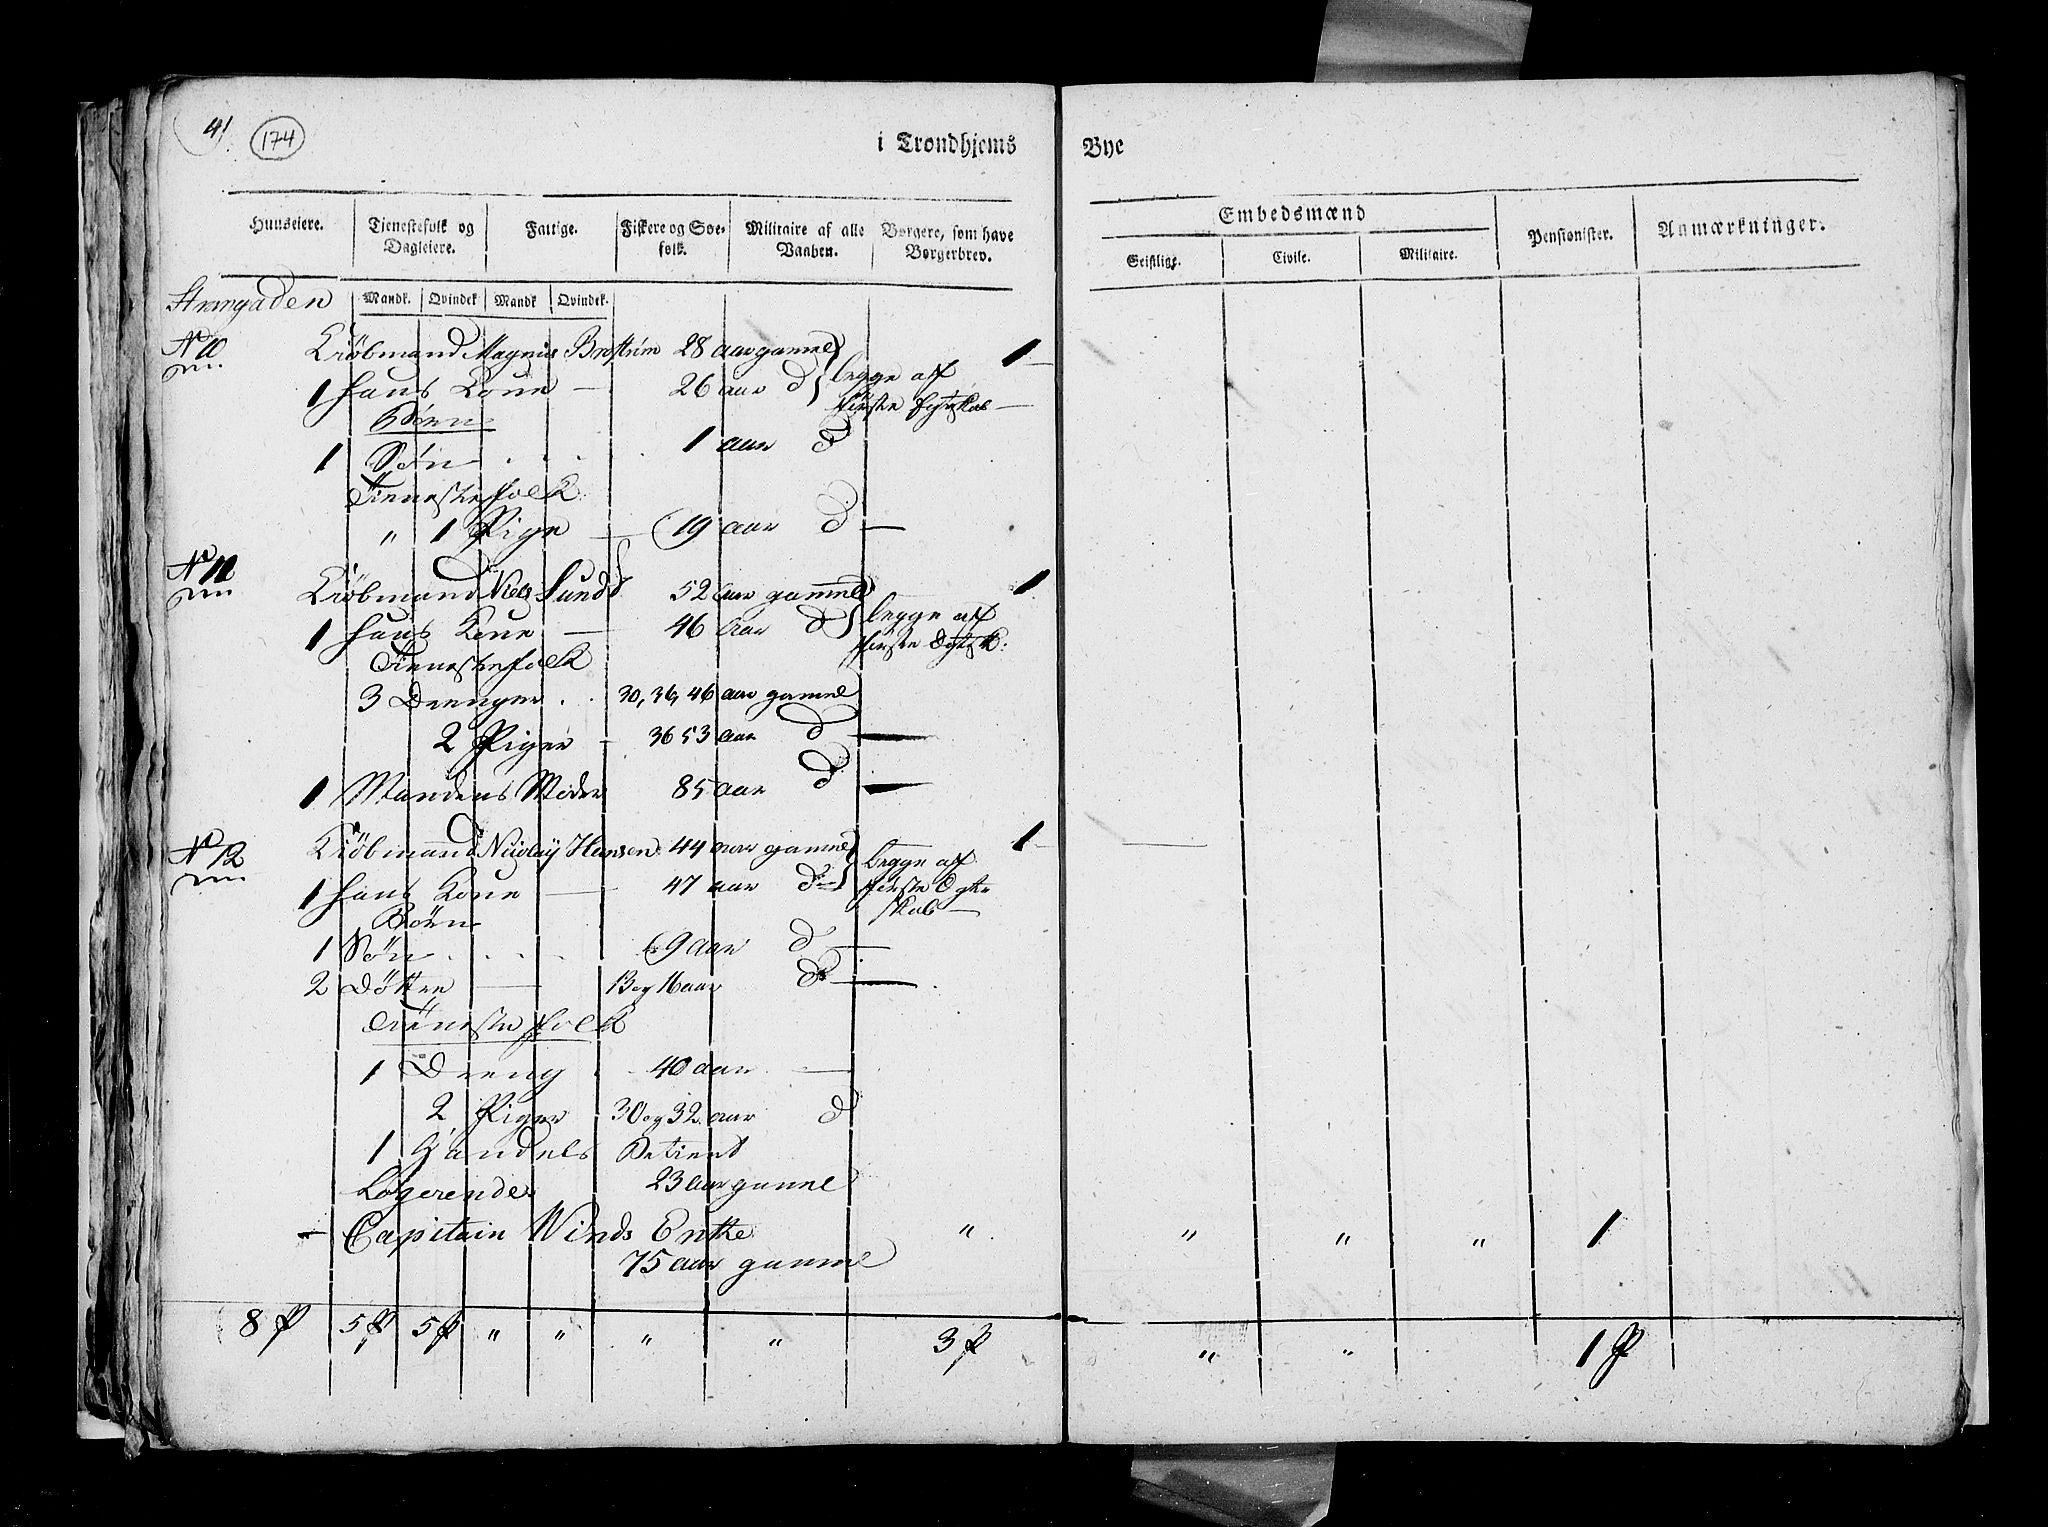 41. 174
i Trondhjems Bye
Huuseiere. Tjenestefolk og Dagleiere. Fattige. Fiskere og Søefolk. Militaire af alle Vaaben. Borgere, som have Borgerbrev. Embedsmænd Geistlige. Civile. Militaire. Pensionister. Anmærkninger.
Mandk. Qvindek Mandk Qvindek.
Strangaden
No 10 Kiøbmand Magnus 28 aar gamel 1
1 hans Kone — 26 aar d begge af
første Egtskab —
Børn
1 Søn . . . 1 aar d
Tienestefolk
" 1 Pige — 19 aar d —
No 11 Kiøbmand Niels Lund 52 aar gammel 1
1 hans Kone — 46 aar d begge af
første Egtsk:
Tienestefolk
3 Drenger . . 30, 36, 46 aar gamel
2 Piger — 36 53 aar d —
1 Mandens Moder 85 aar d —
No 12 Kiøbmand Nicolaÿ Hansen 44 aar gamel 1
1 hans Kone — 47 aar do begge af
første Egte
skab —
Børn
1 Søn . . . . 9 aar d —
2 Døttre — 13 og 16 aar do —
Tieneste folk
1 Dreng . 40 aar —
2 Piger 30 og 32 aar d
1 Handels Betient
23 aar gamel
Logerende
— Capitain Winds Enke " " " " 1
75 aar gamel
8 P 5 P 5 P " " " " 3 P " " 1 P